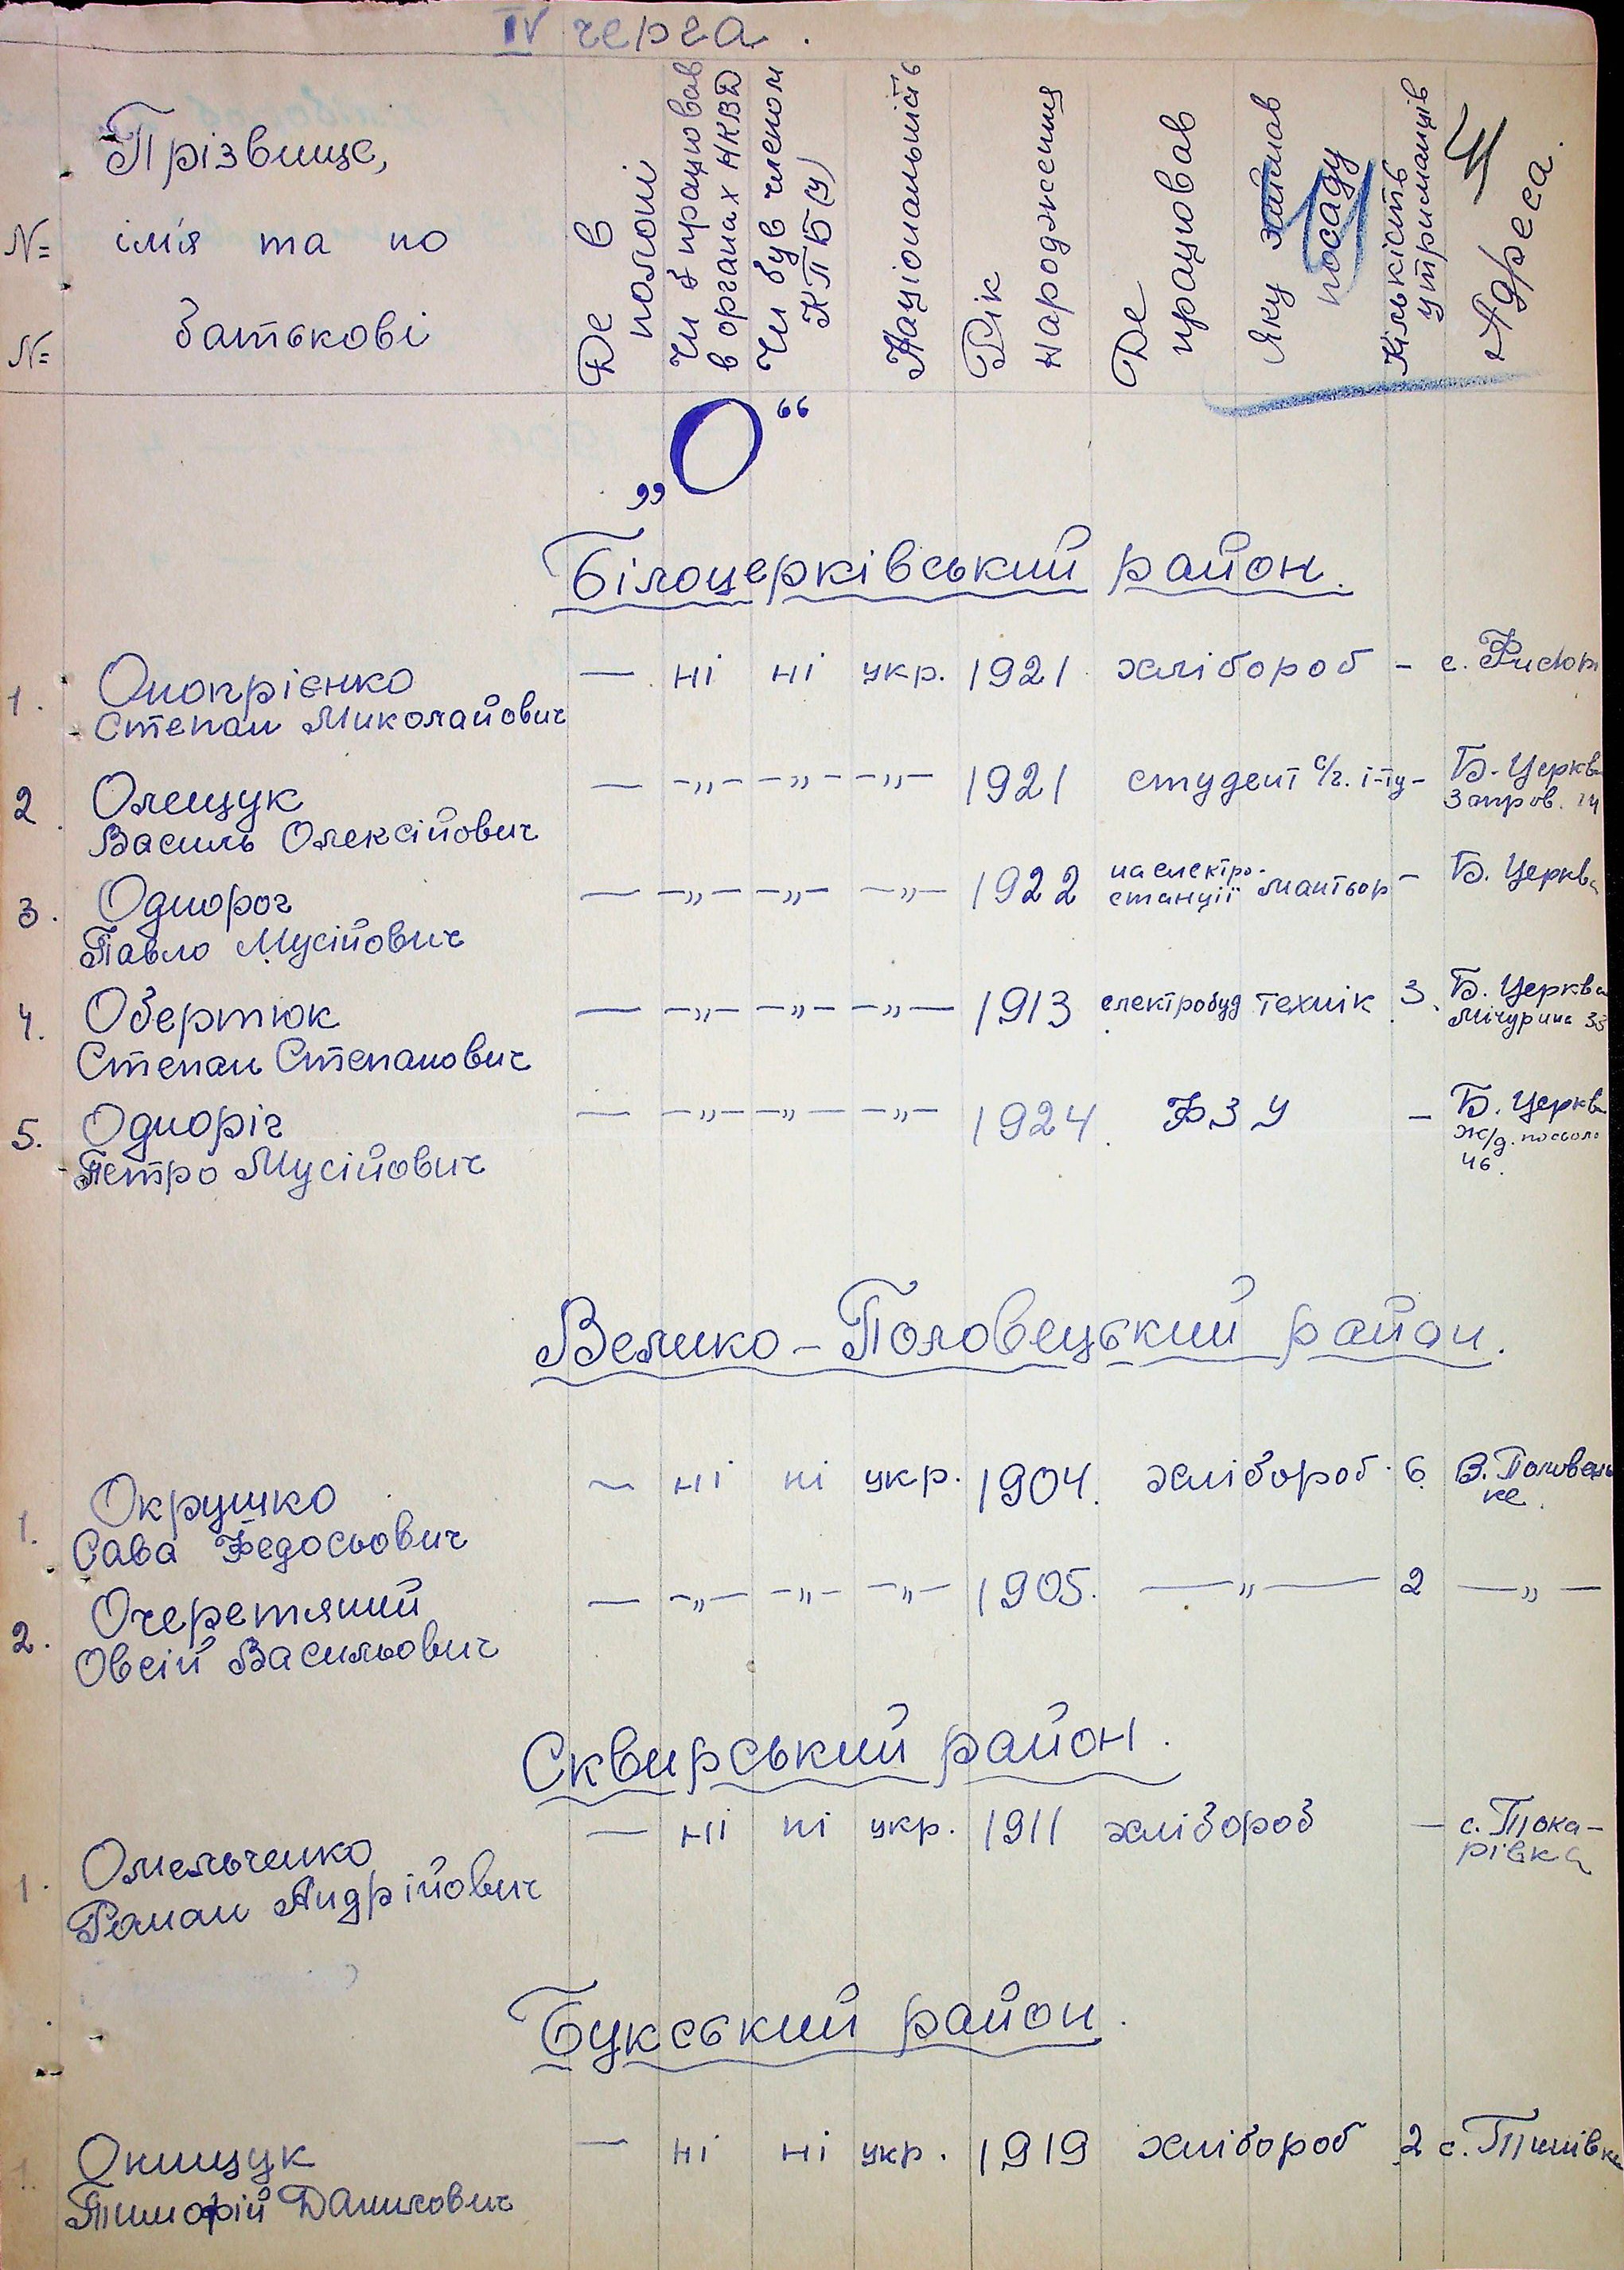 IV черга.
№ № Прізвище, ім'я та по батькові
Де в полоні
Чи працював в органах НКВД
Чи був членом КПБ(у)
Національність
Рік народження
Де працював
Яку займав посаду
Кількість утриманців
Адреса.
„О“
Білоцерківський район.
1. Онопрієнко — ні ні укр. 1921 хлібороб – с.
Степан Миколайович
2. Олещук — –„– –„– –„– 1921 студент с/г. і-ту – Б. Церква
Василь Олексійович
3. Однорог — –„– –„– –„– 1922 на електро-станції монтьор – Б. Церква
Павло Мусійович
4. Обертюк — –„– –„– –„– 1913 електробуд технік 3. Б. Церква Мічуріна
Степан Степанович
5. Одноріг — –„– –„– –„– 1924. ФЗУ – Б. Церква ж/д. 46.
Петро Мусійович
Велико-Половецький район.
1. Окрушко — ні ні укр. 1904. хлібороб 6 В. Половець
ке.
Сава Федосьович
2. Очеретяний — –„– –„– –„– 1905. —„— 2 —„—
Овсій Васильович
Сквирський район.
1. Омельченко — ні ні укр. 1911 хлібороб — с. Тока-
рівка
Роман Андрійович
Букський район.
1. Онищук — ні ні укр. 1919 хлібороб 2 с.
Тимофій Данилович